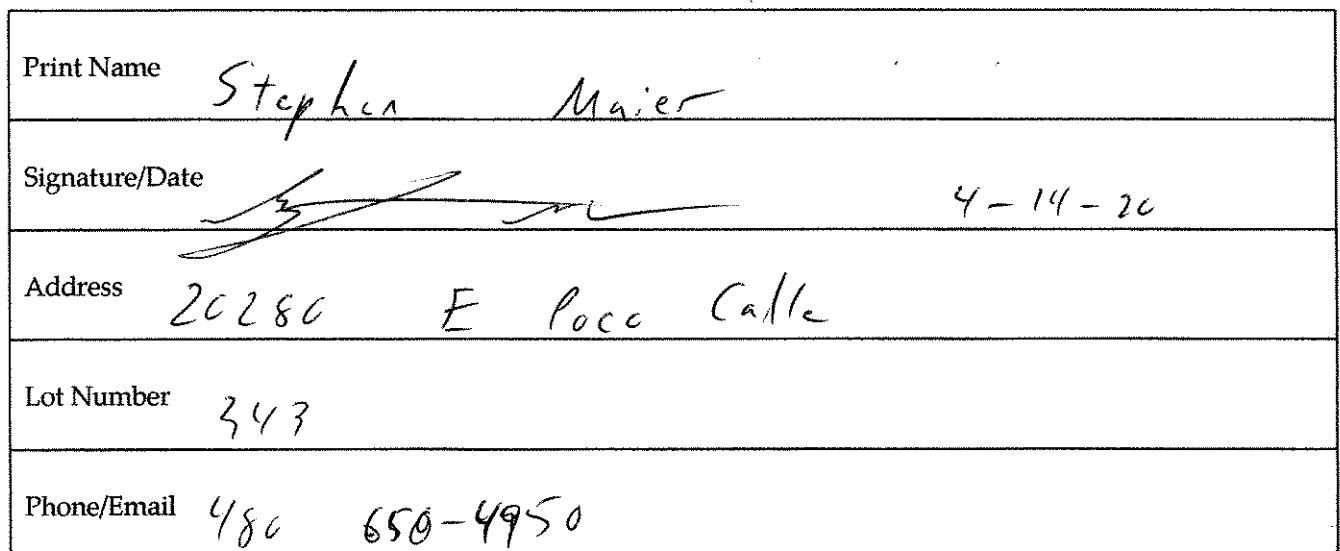 Print Name Stephen Maier
Signature/Date 4-14-20
Address 20280 E Poco Calle
Lot Number 343
Phone/Email 480 650-4950